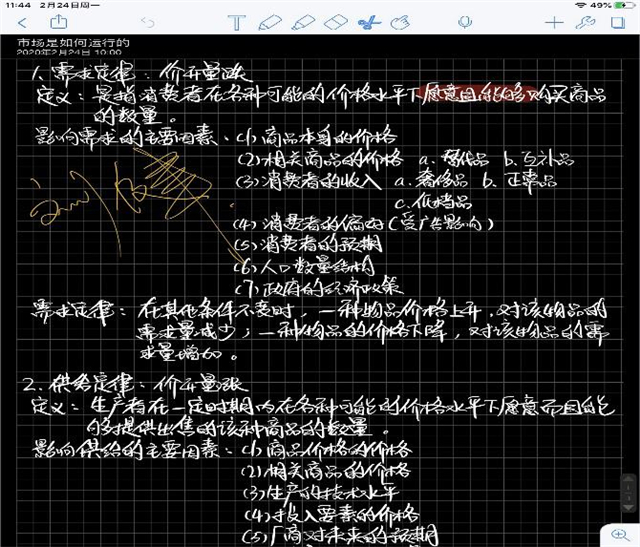 11:44 2月24日周一 49%
市场是如何运行的
2020年2月24日 10:00
1、需求定律：价升量跌
定义：是指消费者在各种可能的价格水平下愿意且能够购买商品
的数量。
影响需求的主要因素：(1)商品本身的价格
(2)相关商品的价格 a.替代品 b.互补品
(3)消费者的收入 a.奢侈品 b.正常品
c.低档品
(4)消费者的偏好(受广告影响)
(5)消费者的预期
(6)人口数量结构
(7)政府的经济政策
需求定律：在其他条件不变时，一种物品价格上升，对该物品的
需求量减少；一种物品的价格下降，对该物品的需
求量增加。
2、供给定律：价升量涨
定义：生产者在一定时期内在各种可能的价格水平下愿意而且能
够提供出售的该种商品的数量。
影响供给的主要因素：(1)商品价格的价格
(2)相关商品的价格
(3)生产的技术水平
(4)投入要素的价格
(5)厂商对未来的预期